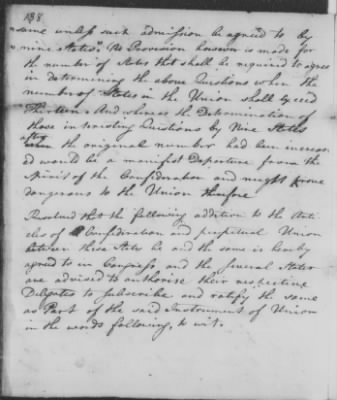 138
same unless such admission be agreed to by
nine States". No Provision however is made for
the number of States that shall be required to agree
in determining the above Questions when the
number of States in the Union shall exceed
Thirteen. And whereas the Determination of
those interesting Questions by Nine States
after the original number had been increas
ed would be a manifest Departure from the
Spirit of the Confederation and might prove
dangerous to the Union therefore
Resolved that the following addition to the Arti
cles of Confederation and perpetual Union
between these States be and the same is hereby
agreed to in Congress and the several States
are advised to authorise their respective
Delegates to subscribe and ratify the same
as Part of the said Instrument of Union
in the words following, to wit.